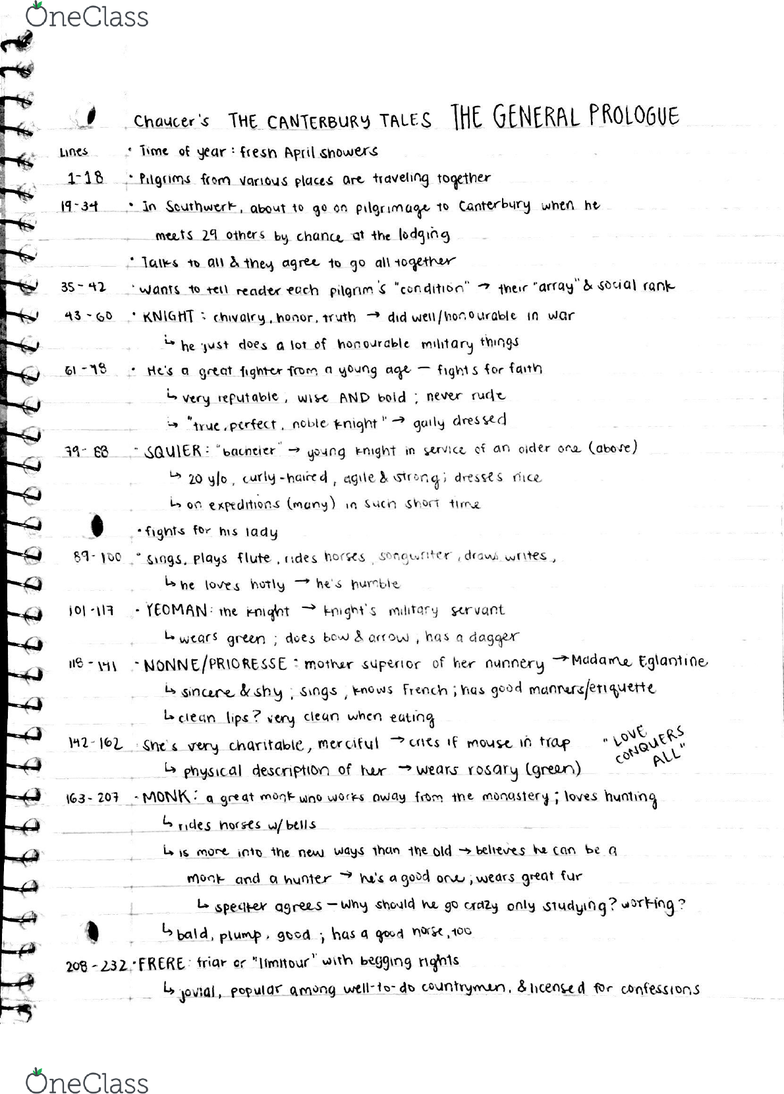 OneClass
Chaucer's THE CANTERBURY TALES THE GENERAL PROLOGUE
Lines • Time of year: fresh April showers
1-18 • Pilgrims from various places are traveling together
19-34 • In Southwerk, about to go on pilgrimage to Canterbury when he
meets 29 others by chance at the lodging
• Talks to all & they agree to go all together
35-42 • wants to tell reader each pilgrim's "condition" → their "array" & social rank
43-60 • KNIGHT: chivalry, honor, truth → did well/honourable in war
↳ he just does a lot of honourable military things
61-78 • He's a great fighter from a young age — fights for faith
↳ very reputable, wise AND bold; never rude
→ "true, perfect, noble knight" → gaily dressed
79-88 • SQUIER: "bacheler" → young knight in service of an older one (above)
↳ 20 y/o, curly-haired, agile & strong; dresses nice
↳ on expeditions (many) in such short time
• fights for his lady
89-100 • sings, plays flute, rides horses, songwriter, draws, writes,
↳ he loves hotly → he's humble
101-117 • YEOMAN: the knight → knight's military servant
↳ wears green; does bow & arrow, has a dagger
118-141 • NONNE/PRIORESSE: mother superior of her nunnery → Madame Eglantine
↳ sincere & shy; sings, knows French; has good manners/etiquette
↳ clean lips? very clean when eating
142-162 She's very charitable, merciful → cries if mouse in trap "LOVE CONQUERS ALL"
↳ physical description of her → wears rosary (green)
163-207 • MONK: a great monk who works away from the monastery; loves hunting
↳ rides horses w/ bells
↳ is more into the new ways than the old → believes he can be a
monk and a hunter → he's a good one; wears great fur
↳ speaker agrees — why should he go crazy only studying? working?
↳ bald, plump, good; has a good horse, too
208-232 • FRERE: friar or "limitour" with begging rights
↳ jovial, popular among well-to-do countrymen, & licensed for confessions
OneClass